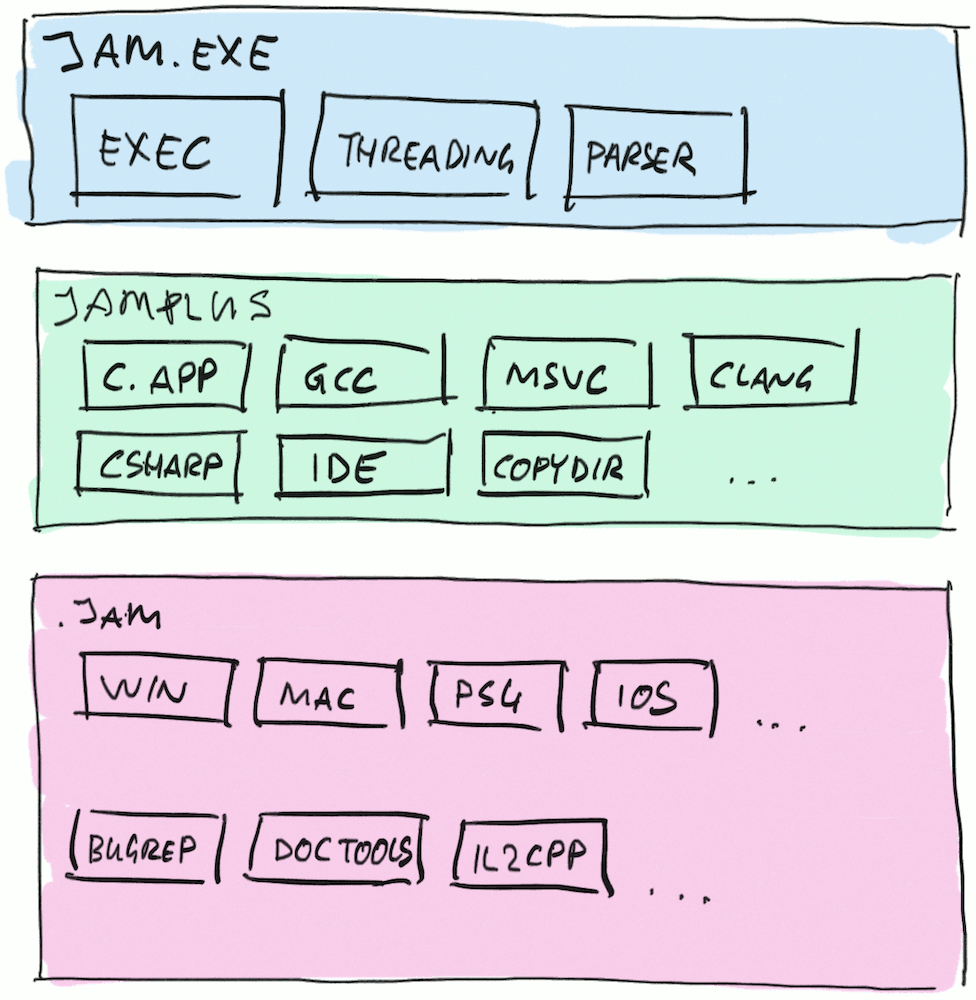 JAM.EXE
EXEC THREADING PARSER
JAMPLUS
C.APP GCC MSVC CLANG
CSHARP IDE COPYDIR ...
.JAM
WIN MAC PS4 IOS ...
BUGREP DOCTOOLS IL2CPP ...